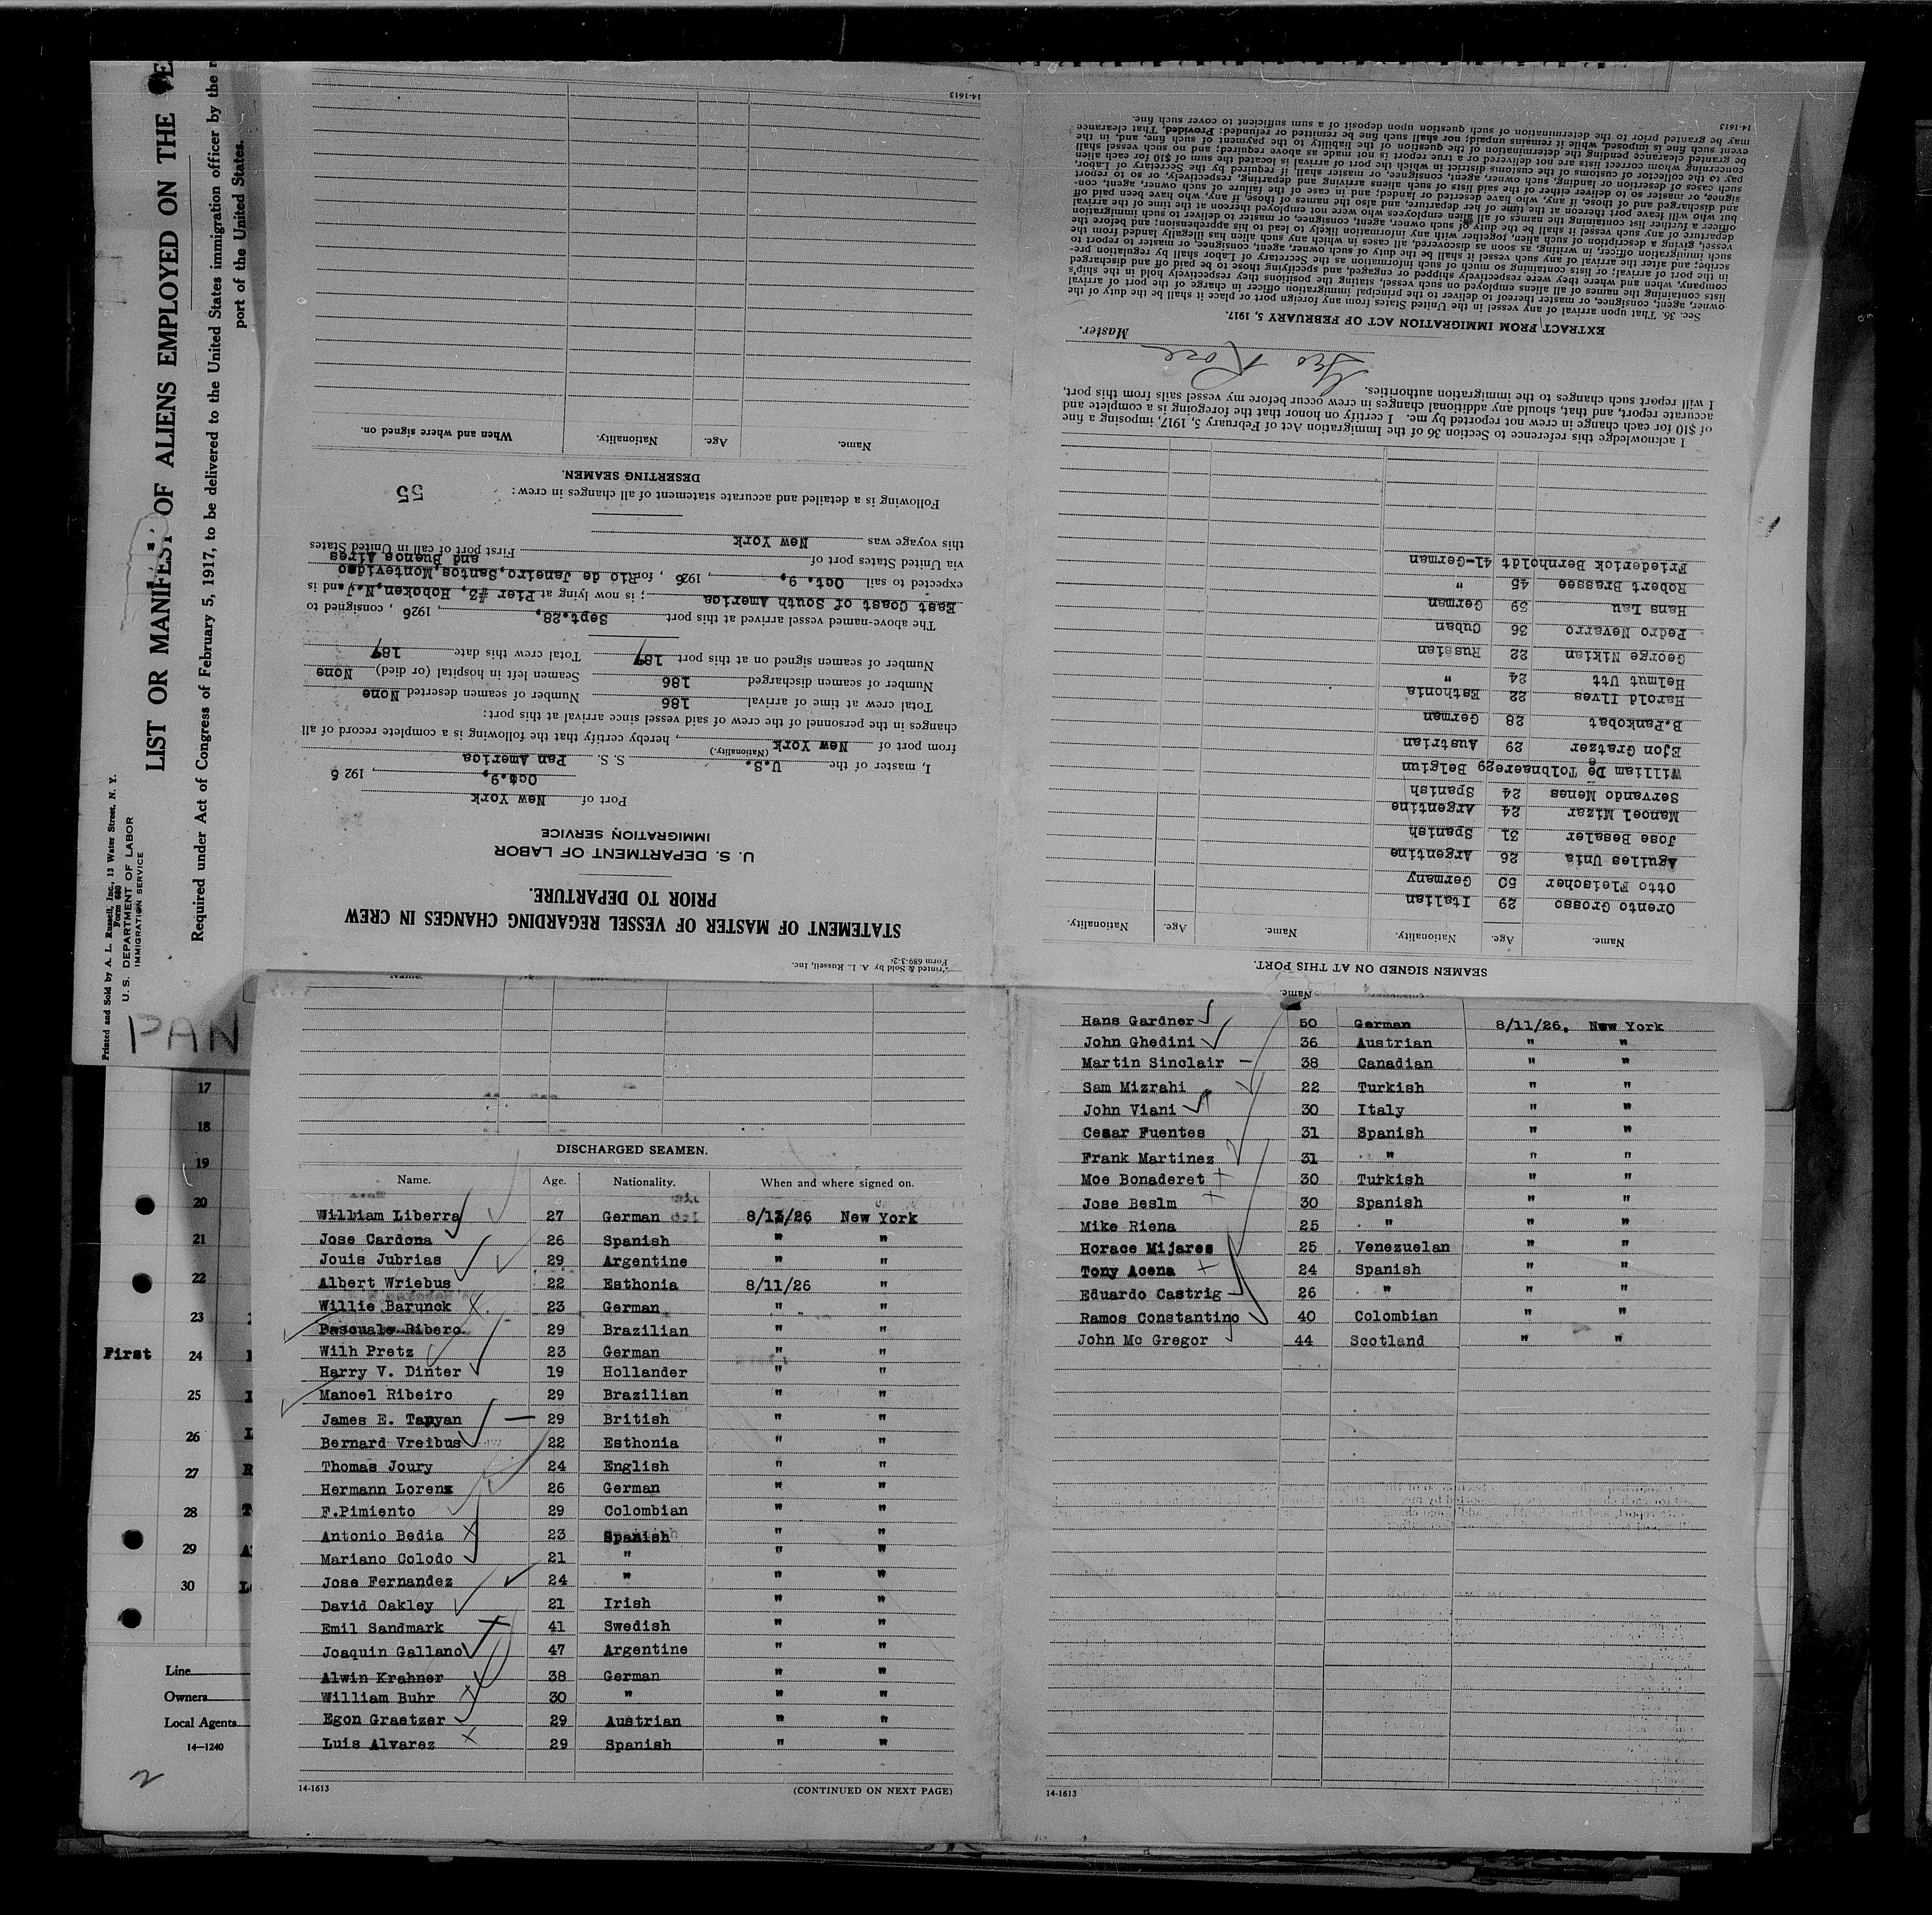 Printed and Sold by A. L. Russell, Inc., 13 Water Street, N. Y.
Form 680
U. S. DEPARTMENT OF LABOR
IMMIGRATION SERVICE
LIST OR MANIFEST OF ALIENS EMPLOYED ON THE
Required under Act of Congress of February 5, 1917, to be delivered to the United States immigration officer by the
port of the United States.
PAN
17
18
19
20
21
22
23
First 24
25
26
27
28
29
30
Line
Owners
Local Agents
14—1240
2
Printed & Sold by A. L. Russell, Inc.
Form 689-3-2
STATEMENT OF MASTER OF VESSEL REGARDING CHANGES IN CREW
PRIOR TO DEPARTURE.
U. S. DEPARTMENT OF LABOR
IMMIGRATION SERVICE
Port of New York
Oct.9, , 192 6
I, master of the U.S. S. S. Pan America
(Nationality.)
from port of New York , hereby certify that the following is a complete record of all
changes in the personnel of the crew of said vessel since arrival at this port:
Total crew at time of arrival 186 Number of seamen deserted None
Number of seamen discharged 186 Seamen left in hospital (or died) None
Number of seamen signed on at this port 187 Total crew this date 187
The above-named vessel arrived at this port Sept.28, , 1926 , consigned to
East Coast of South America ; is now lying at Pier #3, Hoboken,N.J. and is
expected to sail Oct. 9, , 1926 , for Rio de Janeiro,Santos,Montevideo
and Buenos Aires
via United States port of First port of call in United States
this voyage was New York
Following is a detailed and accurate statement of all changes in crew:
55
DESERTING SEAMEN.
Name. Age. Nationality. When and where signed on.
14-1613
DISCHARGED SEAMEN.
Name. Age. Nationality. When and where signed on.
William Liberra 27 German 8/13/26 New York
Jose Cardona 26 Spanish " "
Jouis Jubrias 29 Argentine " "
Albert Wriebus 22 Esthonia 8/11/26 "
Willie Barunck 23 German " "
Pascuale Ribero 29 Brazilian " "
Wilh Pretz 23 German " "
Harry V. Dinter 19 Hollander " "
Manoel Ribeiro 29 Brazilian " "
James E. Tanyan 29 British " "
Bernard Vreibus 22 Esthonia " "
Thomas Joury 24 English " "
Hermann Lorenz 26 German " "
F.Pimiento 29 Colombian " "
Antonio Bedia 23 Spanish " "
Mariano Colodo 21 " " "
Jose Fernandez 24 " " "
David Oakley 21 Irish " "
Emil Sandmark 41 Swedish " "
Joaquin Gallano 47 Argentine " "
Alwin Krahner 38 German " "
William Buhr 30 " " "
Egon Graetzer 29 Austrian " "
Luis Alvarez 29 Spanish " "
14-1613 (CONTINUED ON NEXT PAGE)
Hans Gardner 50 German 8/11/26. New York
John Ghedini 36 Austrian " "
Martin Sinclair 38 Canadian " "
Sam Mizrahi 22 Turkish " "
John Viani 30 Italy " "
Cesar Fuentes 31 Spanish " "
Frank Martinez 31 " " "
Moe Bonaderet 30 Turkish " "
Jose Beslm 30 Spanish " "
Mike Riena 25 " " "
Horace Mijares 25 Venezuelan " "
Tony Acena 24 Spanish " "
Eduardo Castrig 26 " " "
Ramos Constantino 40 Colombian " "
John Mc Gregor 44 Scotland " "
14-1613
SEAMEN SIGNED ON AT THIS PORT.
Name. Age. Nationality. Name. Age. Nationality.
Orento Grosso 29 Italian
Otto Fleischer 50 Germany
Aguiles Unia 26 Argentine
Jose Besaler 31 Spanish
Manoel Mizar 24 Argentine
Servando Menes 24 Spanish
William De Tolbnaere 29 Belgiun
Ejon Gratzer 29 Austrian
B.Pankobat 28 German
Harold Ilves 22 Esthonia
Helmut Utt 24 "
George Nikian 22 Russian
Pedro Navarro 36 Cuban
Hans Lau 39 German
Robert Brassee 45 "
Friederick Bernholdt 41-German
I acknowledge this reference to Section 36 of the Immigration Act of February 5, 1917, imposing a fine
of $10 for each change in crew not reported by me. I certify on honor that the foregoing is a complete and
accurate report, and that, should any additional changes in crew occur before my vessel sails from this port,
I will report such changes to the immigration authorities.
Geo Rose
Master.
EXTRACT FROM IMMIGRATION ACT OF FEBRUARY 5, 1917.
Sec. 36. That upon arrival of any vessel in the United States from any foreign port or place it shall be the duty of the
owner, agent, consignee, or master thereof to deliver to the principal immigration officer in charge of the port of arrival
lists containing the names of all aliens employed on such vessel, stating the positions they respectively hold in the ship's
company, when and where they were respectively shipped or engaged, and specifying those to be paid off and discharged
in the port of arrival; or lists containing so much of such information as the Secretary of Labor shall by regulation pre-
scribe; and after the arrival of any such vessel it shall be the duty of such owner, agent, consignee, or master to report to
such immigration officer, in writing, as soon as discovered, all cases in which any such alien has illegally landed from the
vessel, giving a description of such alien, together with any information likely to lead to his apprehension; and before the
departure of any such vessel it shall be the duty of such owner, agent, consignee, or master to deliver to such immigration
officer a further list containing the names of all alien employees who were not employed thereon at the time of the arrival
but who will leave port thereon at the time of her departure, and also the names of those, if any, who have been paid off
and discharged and of those, if any, who have deserted or landed; and in case of the failure of such owner, agent, con-
signee, or master so to deliver either of the said lists of such aliens arriving and departing, respectively, or so to report
such cases of desertion or landing, such owner, agent, consignee, or master shall, if required by the Secretary of Labor,
pay to the collector of customs of the customs district in which the port of arrival is located the sum of $10 for each alien
concerning whom correct lists are not delivered or a true report is not made as above required; and no such vessel shall
be granted clearance pending the determination of the question of the liability to the payment of such fine, and, in the
event such fine is imposed, while it remains unpaid; nor shall such fine be remitted or refunded: Provided, That clearance
may be granted prior to the determination of such question upon deposit of a sum sufficient to cover such fine.
14-1613